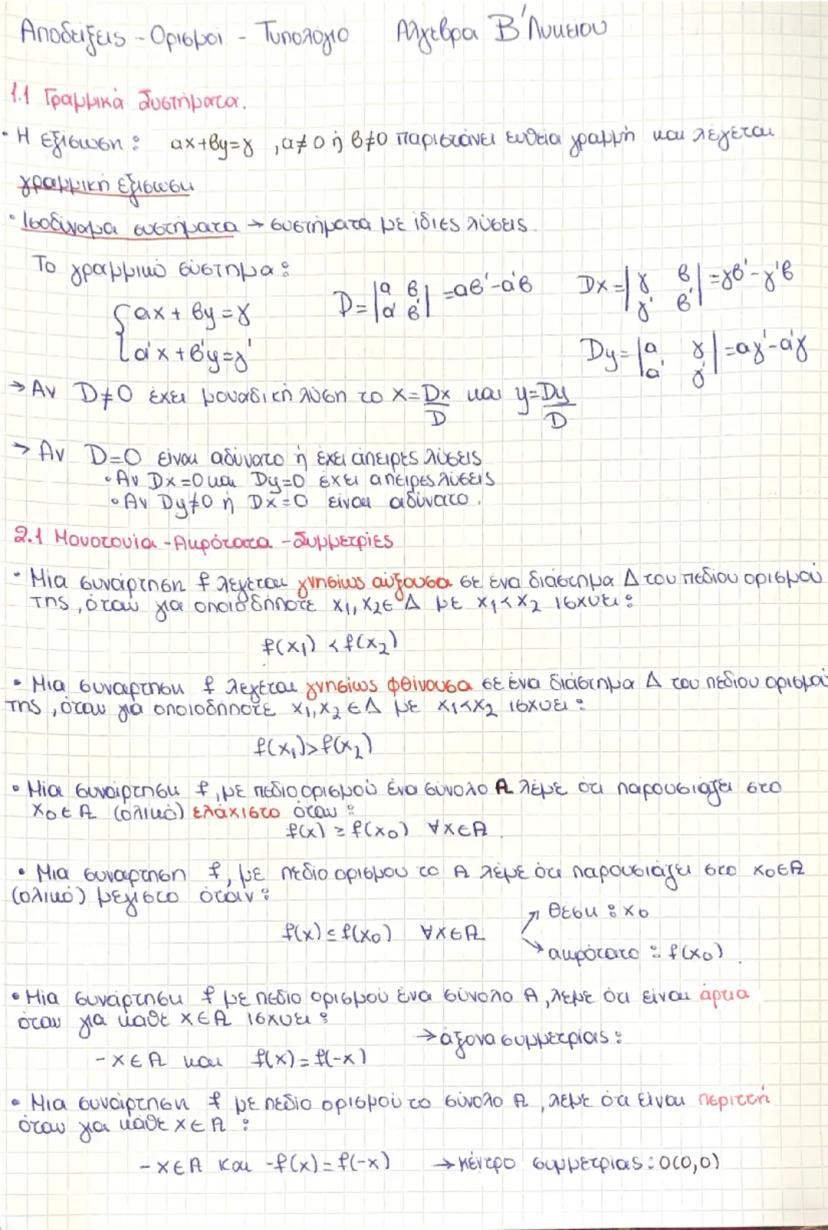 Αποδείξεις - Ορισμοί - Τυπολόγιο Άλγεβρα Β' Λυκείου
1.1 Γραμμικά Συστήματα.
• Η εξίσωση: αx+βy=γ , α≠0 ή β≠0 παριστάνει ευθεία γραμμή και λέγεται
γραμμική εξίσωση
• Ισοδύναμα συστήματα → συστήματα με ίδιες λύσεις
Το γραμμικό σύστημα:
{ αx + βy = γ
α'x + β'y = γ'
D = |α β α' β'| = αβ'-α'β
Dx = |γ β γ' β'| = γβ'-γ'β
Dy = |α γ α' γ'| = αγ'-α'γ
→ Αν D≠0 έχει μοναδική λύση το x = Dx/D και y = Dy/D
→ Αν D=0 είναι αδύνατο ή έχει άπειρες λύσεις
• Αν Dx=0 και Dy=0 έχει άπειρες λύσεις
• Αν Dy≠0 ή Dx=0 είναι αδύνατο.
2.1 Μονοτονία - Ακρότατα - Συμμετρίες
• Μια συνάρτηση f λέγεται γνησίως αύξουσα σε ένα διάστημα Δ του πεδίου ορισμού
της, όταν για οποιοδήποτε x₁,x₂∈Δ με x₁<x₂ ισχύει:
f(x₁) < f(x₂)
• Μια συνάρτηση f λέγεται γνησίως φθίνουσα σε ένα διάστημα Δ του πεδίου ορισμού
της, όταν για οποιοδήποτε x₁,x₂ ∈ Δ με x₁<x₂ ισχύει:
f(x₁) > f(x₂)
• Μια συνάρτηση f, με πεδίο ορισμού ένα σύνολο Α λέμε ότι παρουσιάζει στο
x₀∈Α (ολικό) ελάχιστο όταν:
f(x) ≥ f(x₀) ∀x∈Α
• Μια συνάρτηση f, με πεδίο ορισμού το Α λέμε ότι παρουσιάζει στο x₀∈Α
(ολικό) μέγιστο όταν:
f(x) ≤ f(x₀) ∀x∈Α
↗ θέση: x₀
↘ ακρότατο: f(x₀)
• Μια συνάρτηση f με πεδίο ορισμού ένα σύνολο Α, λέμε ότι είναι άρτια
όταν για κάθε x∈Α ισχύει:
→ άξονα συμμετρίας:
-x∈Α και f(x) = f(-x)
• Μια συνάρτηση f με πεδίο ορισμού το σύνολο Α, λέμε ότι είναι περιττή
όταν για κάθε x∈Α:
-x∈Α και -f(x) = f(-x) → κέντρο συμμετρίας: Ο(0,0)